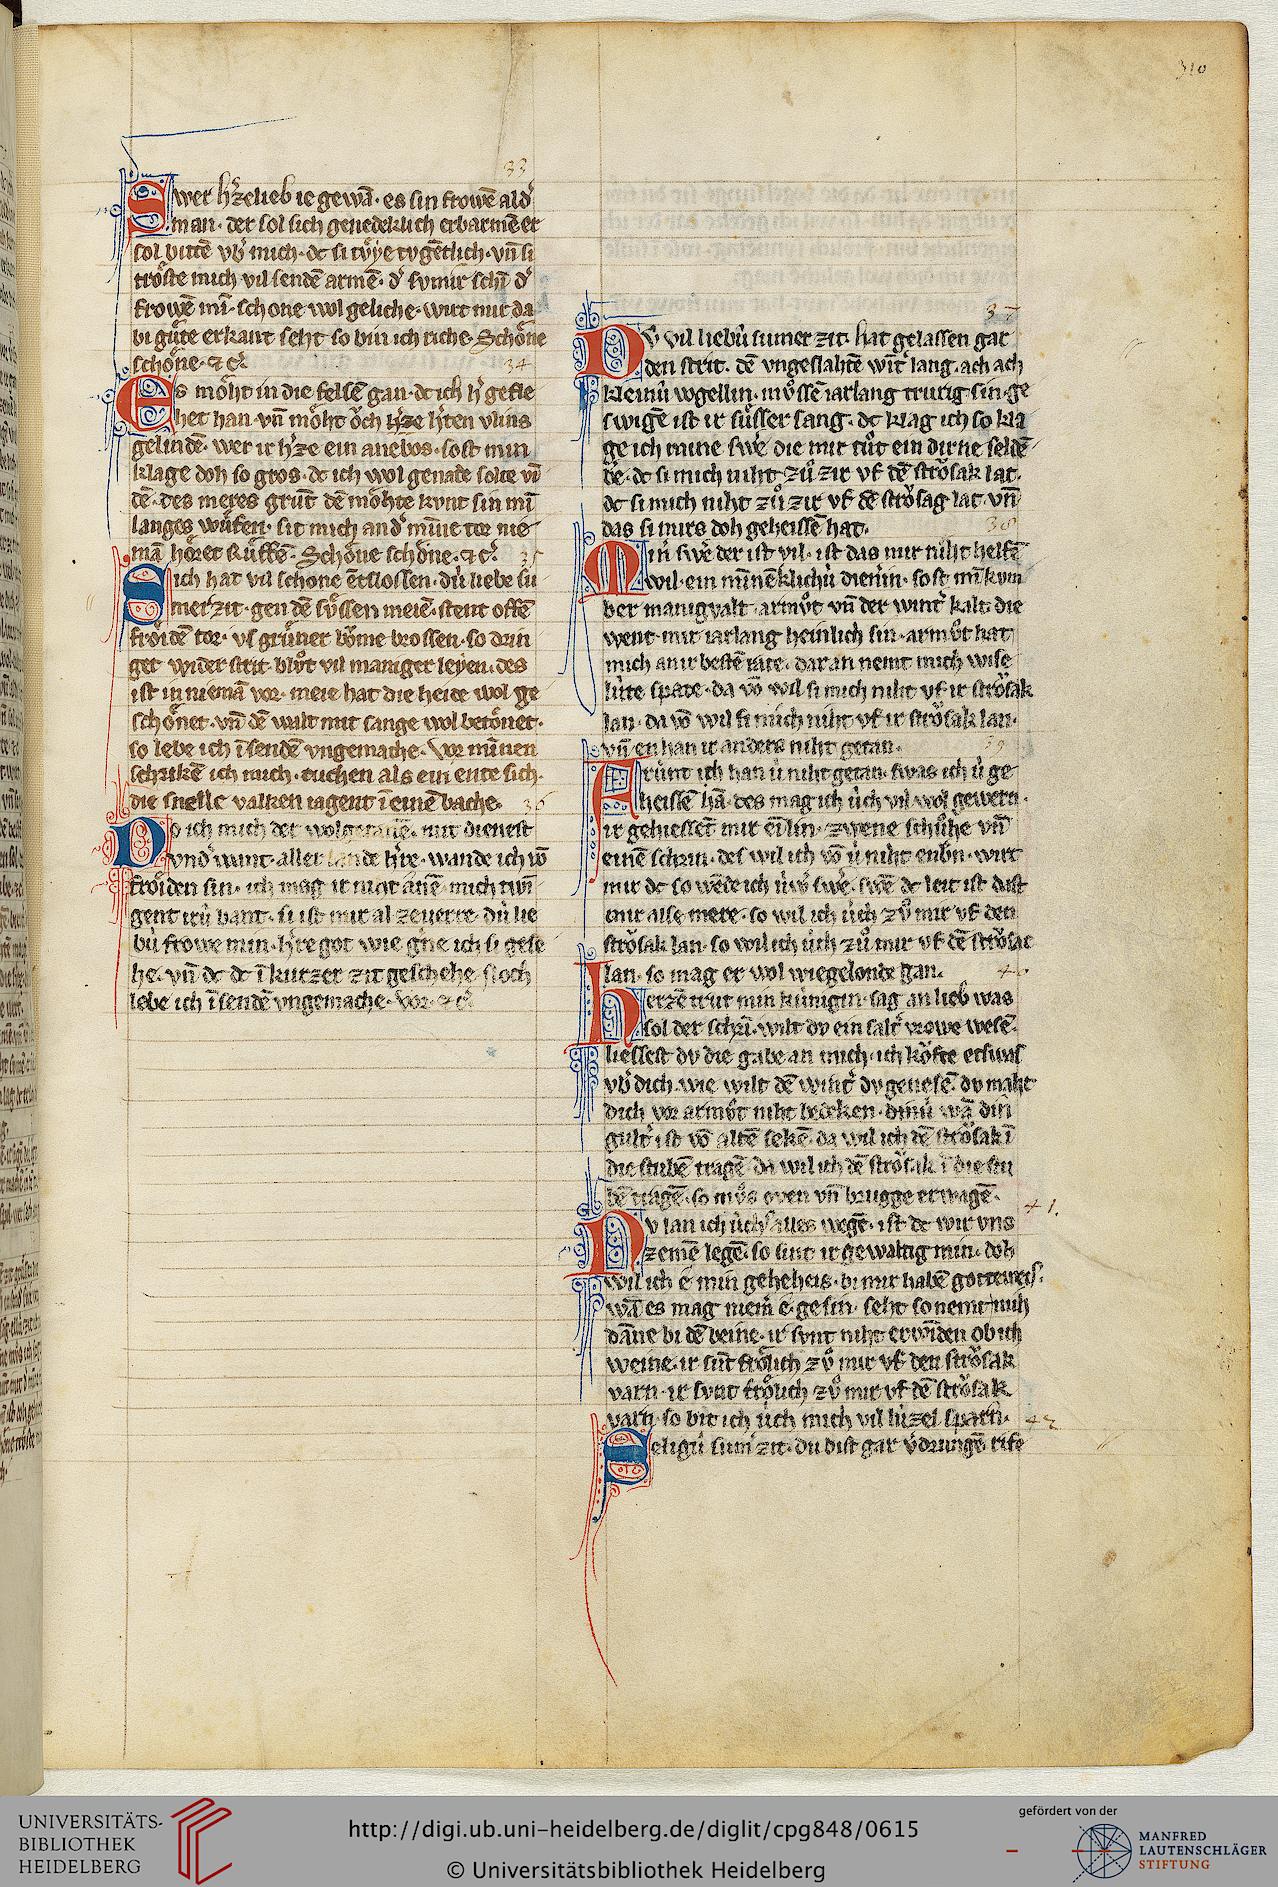 310
33
Swer h̾zelieb ie gewā· es sin frowē ald̾
man· der sol sich genedeklich erbarmē er
sol bittē vb̾ mich· dc si tv̊ye tvgētlich· vn̄ si
trôste mich vil sendē armē· d̾ svnnē schī d̾
frowē mī· schone wol geliche· wirt mir da
bi gůte erkant seht so bin ich riche· Schône
schône· &c̾·
34
Es môht in die felsē gan· dc ich h̾ gefle
het han· vn̄ môht ôch h̾ze h̾ten vlins
gelindē· wer ir h̾ze ein anebos· so ist min
klage doh so gros· dc ich wol genade solte vī
dē· des meres grūt dē môhte kvnt sin mī
langes wůfen· sit mich and̾ mīne tor nie
mā hôret růffē· Schône schône· &c̾·
35
Sich hat vil schone ētslossen· dú liebe su
mer zit· gen dē sv̊ssen meiē· stent offē
frôidē tor· vs grůner bôme brossen· so drin
get wider strit· blůt vil maniger leyen· des
ist in niemā vor· meie hat die heide wol ge
schônet· vn̄ dē walt mit sange wol betônet·
so lebe ich ī sendē vngemache· Vor mīnen
schrikē ich mich· tuchen als ein ente sich·
die snelle valken iagent ī einē bache·
36
Do ich mich der wolgetanē· mit dienest
vnd̾ want· aller lande h̾re· wande ich vō
frôiden sin· ich mag ir niot anē· mich twī
gent irú bant· si ist mir al ze verre· dú lie
bú frowe min· h̾re got wie g̾ne ich si gese
he· vn̄ dc dc ī kurzer zit geschehe· noch
lebe ich ī sendē vngemache· Vor· &c̾·
37
Dv́ vil liebú sumer zit· hat gelassen gar
den strit· dē vngeslahtē wint̾ lang· ach ach
kleinú vogellin· mv̊ssē iarlang trurig sin· ge
swigē ist ir sůsser sang· dc klag ich so kla
ge ich mine sw̾e die mir tůt ein dirne seldē
b̾e· dc si mich niht zů zir vf dē strôsak lat·
dc si mich niht zů zir vf dē strôsag lat· vn̄
das si mirs doh geheissē hat·
38
Min sw̾e der ist vil· ist das mir niht helfē
wil· ein mīneklichú dienerin· so ist mī kvm
ber manigvalt· armv̊t vn̄ der wint̾ kalt· die
went mir iarlang heinlich sin· armv̊t hat
mich an ir bestē rate· dar an nemt mich wise
lúte spate· da vō wil si mich niht vf ir strôsak
lan· da vō wil si mich niht vf ir strôsak lan·
vn̄ en han ir anders niht getan·
39
Frúnt ich han ú niht getan· swas ich ú ge
heissē hā· des mag ich úch vil wol gewern·
ir gehiessēt mir ein lin· zwene schůhe vn̄
einē schrin· des wil ich vō ú niht enb̾n· wirt
mir dc so wēde ich úw̾ sw̾e· swē dc leit ist dast
mir alse mere· so wil ich úch zů mir vf den
strôsak lan· so wil ich úch zů mir vf dē strôsac
lan· so mag er wol wiegelonde gan·
40
Herzē trut min kúnigin· sag an lieb was
sol der schrī· wilt dv ein salt̾ vrowe wesē·
liessest dv die gabe an mich· ich kôfte etswas
vb̾ dich· wie wilt dē wint̾ dv genesē· dv maht
dich vor armv̊t niht bedeken· dinú wā din
gult̾ ist vō altē sekē· da wil ich dē strôsak ī
die stubē tragē· da wil ich dē strôsak ī die stu
bē tragē· so mv̊s oven vn̄ brugge erwagē·
41.
Nv lan ich úchs alles wegē· ist dc wir vns
zemē legē· so sint ir gewaltig min· doh
wil ich e min geheheis· bi mir habē gottewis·
wā es mag niem̄ e gesin· seht so nemt mih
dāne bi dē beine· ir svnt niht erwīden ob ich
weine· ir sūt frôlich zů mir vf den strôsak
varn· ir svnt frôlich zů mir vf dē strôsak
varn· so bit ich úch mich vil lúzel sparn·
42
Seligú sum̾ zit· du bist gar v̾drungē rife
UNIVERSITÄTS-
BIBLIOTHEK
HEIDELBERG
http://digi.ub.uni-heidelberg.de/diglit/cpg848/0615
© Universitätsbibliothek Heidelberg
gefördert von der
MANFRED
LAUTENSCHLÄGER
STIFTUNG